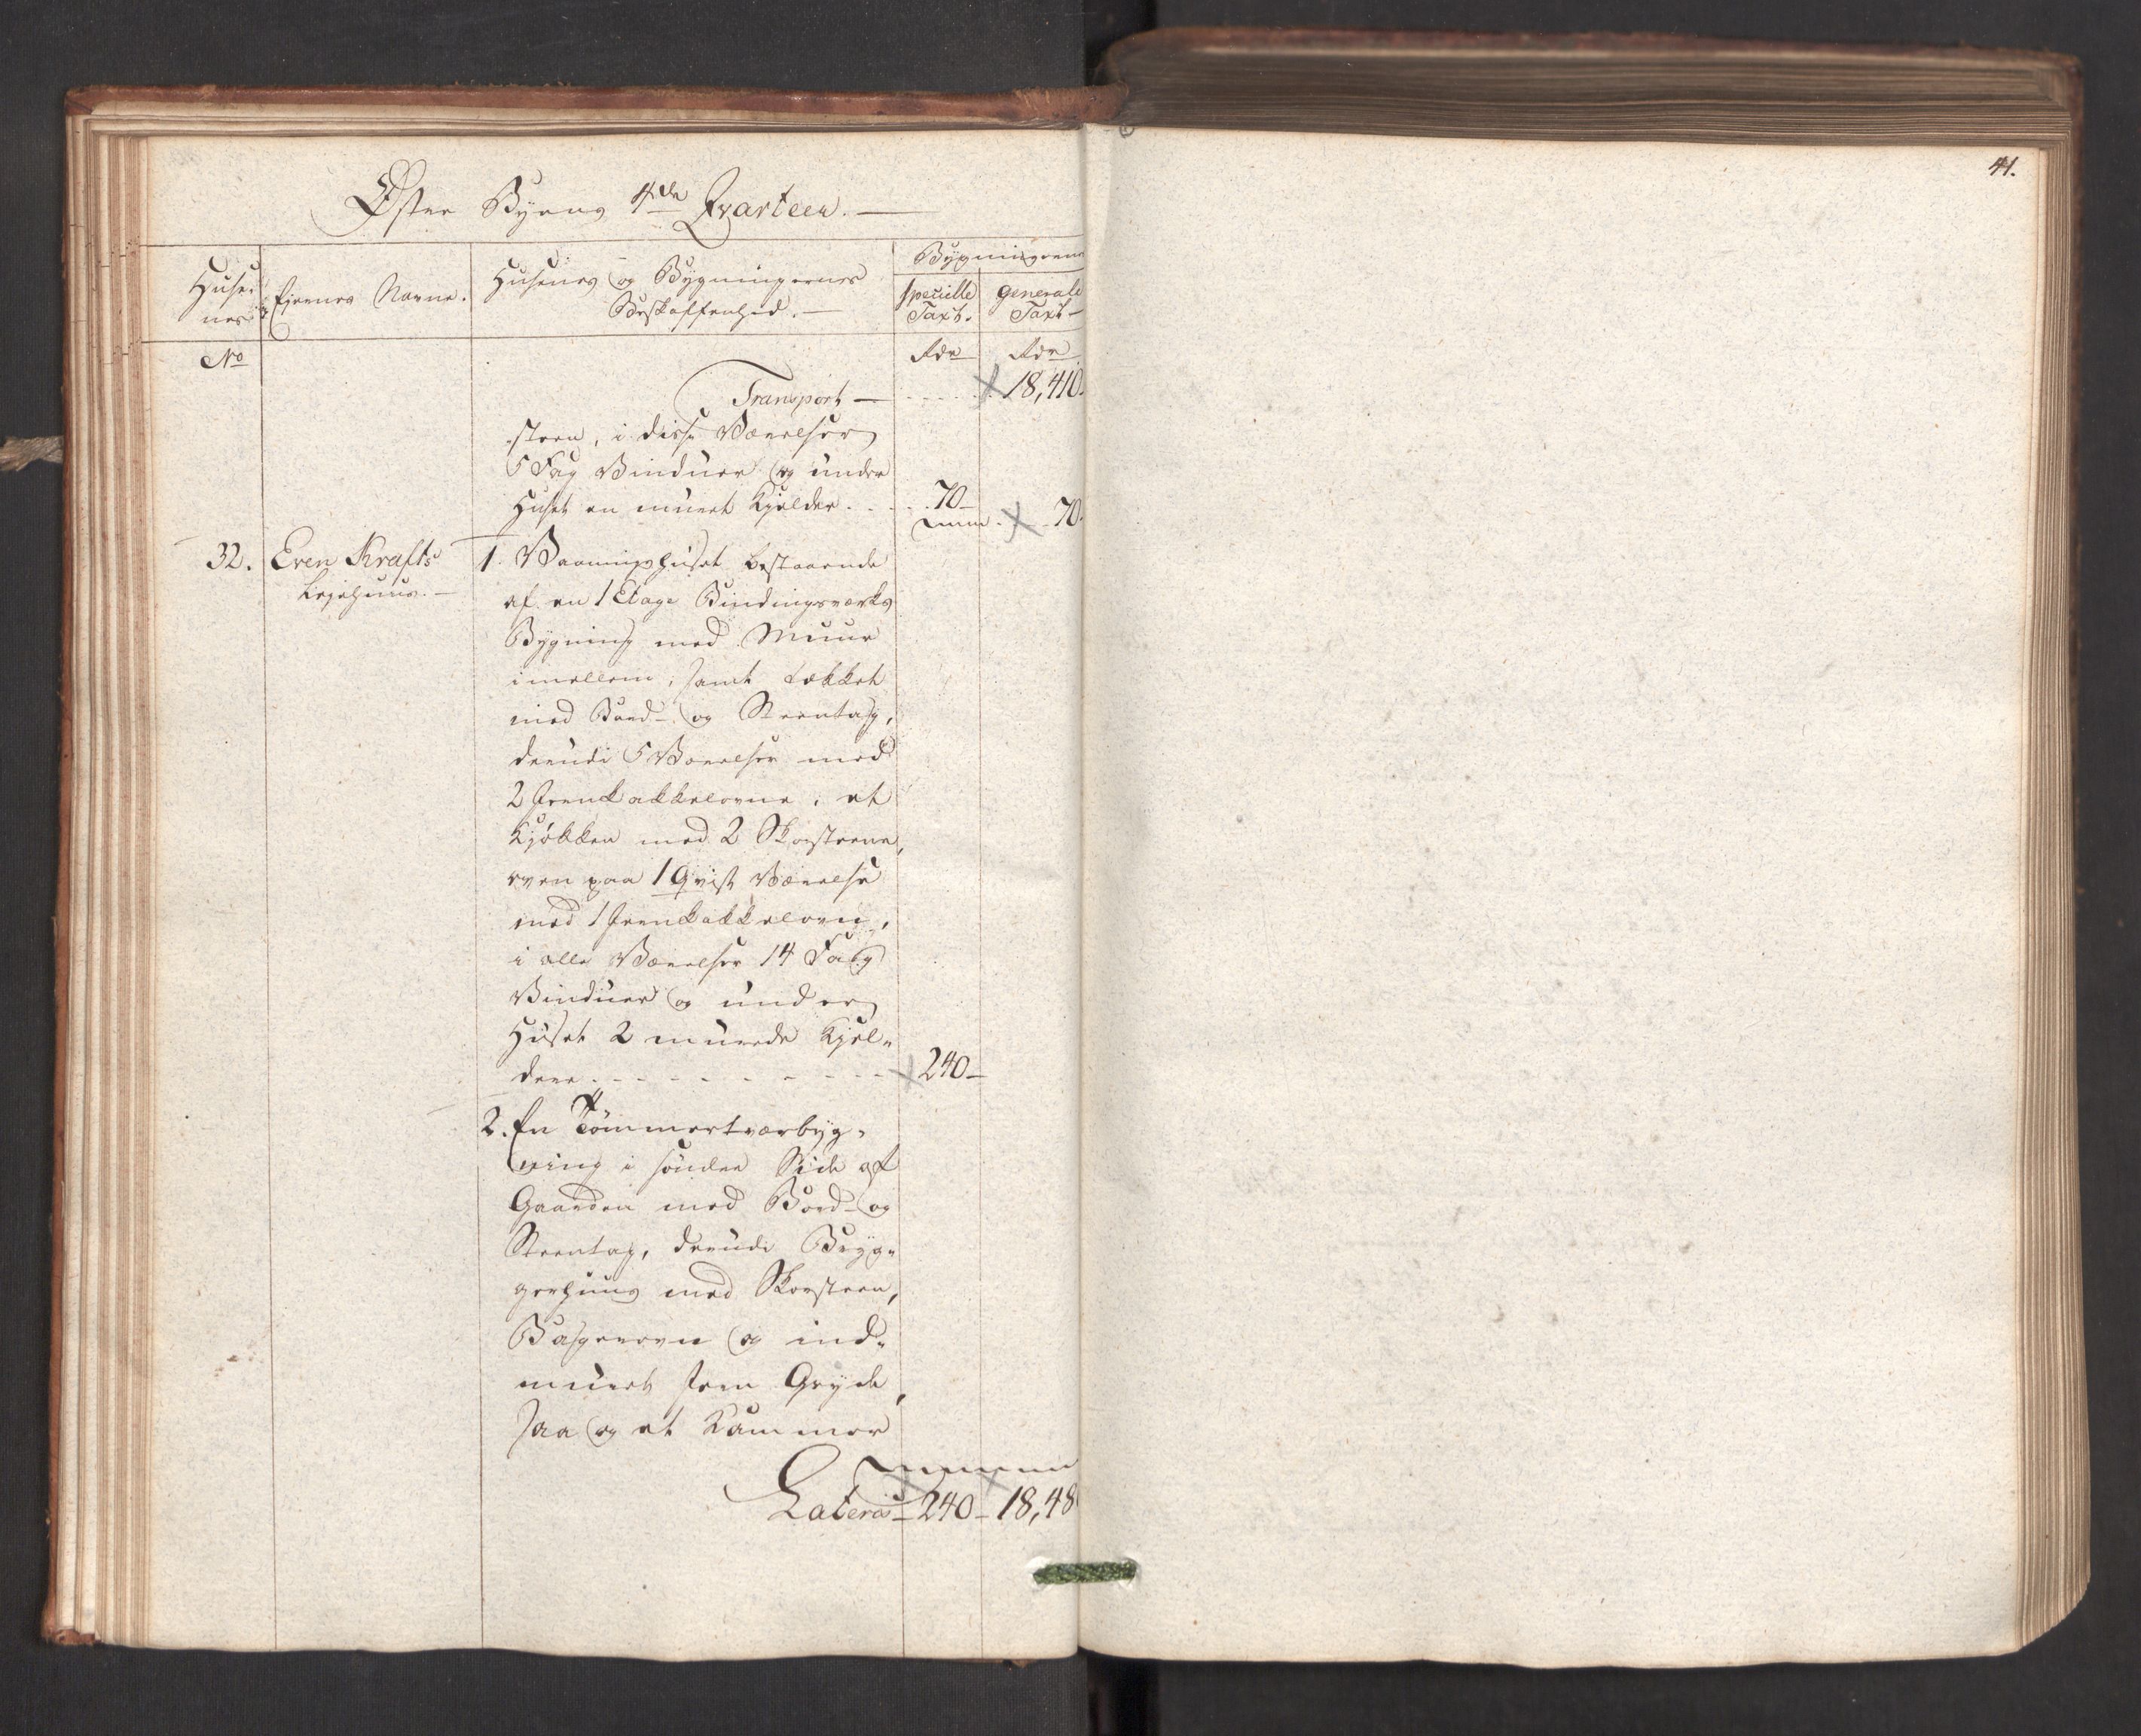 Øster Byens 4de Qvarteer.
Huse-
nes
Ejernes Navne.
Husenes og Bygningernes
Beskaffenhed.
Bygningernes
specielle
Taxt.
generale
Taxt
No
Rdr
Rdr
Transport — 18,410.
steen, i disse Værelser
5 Fag Vinduer og under
Huset en muret Kjelder. 70 — 70.
32. Even Krafts 1. Vaaningshuset bestaaende
Lejehuus. — af en 1 Etage Bindingsværks
Bygning med Muur
imellem, samt tækket
med Bord- og Steentag,
deriidi 5 Værelser med
2 Jernkakkelovne, et
Kjøkken med 2 Skorsteene,
oven paa 1 Qvist Værelse
med 1 Jernkakkelovn,
i alle Værelser 14 Fag
Vinduer og under
Huset 2 murede Kjel-
dere. - - - - 240 —
2. En Tømmertværbyg-
ning i søndre Side af
Gaarden med Bord- og
Steentag, derudi Bryg-
gerhuus med Skorsteen,
Bagerovn og ind-
muret Jern Gryde,
saa og et Kammer
Lateris — 240 — 18,48
41.